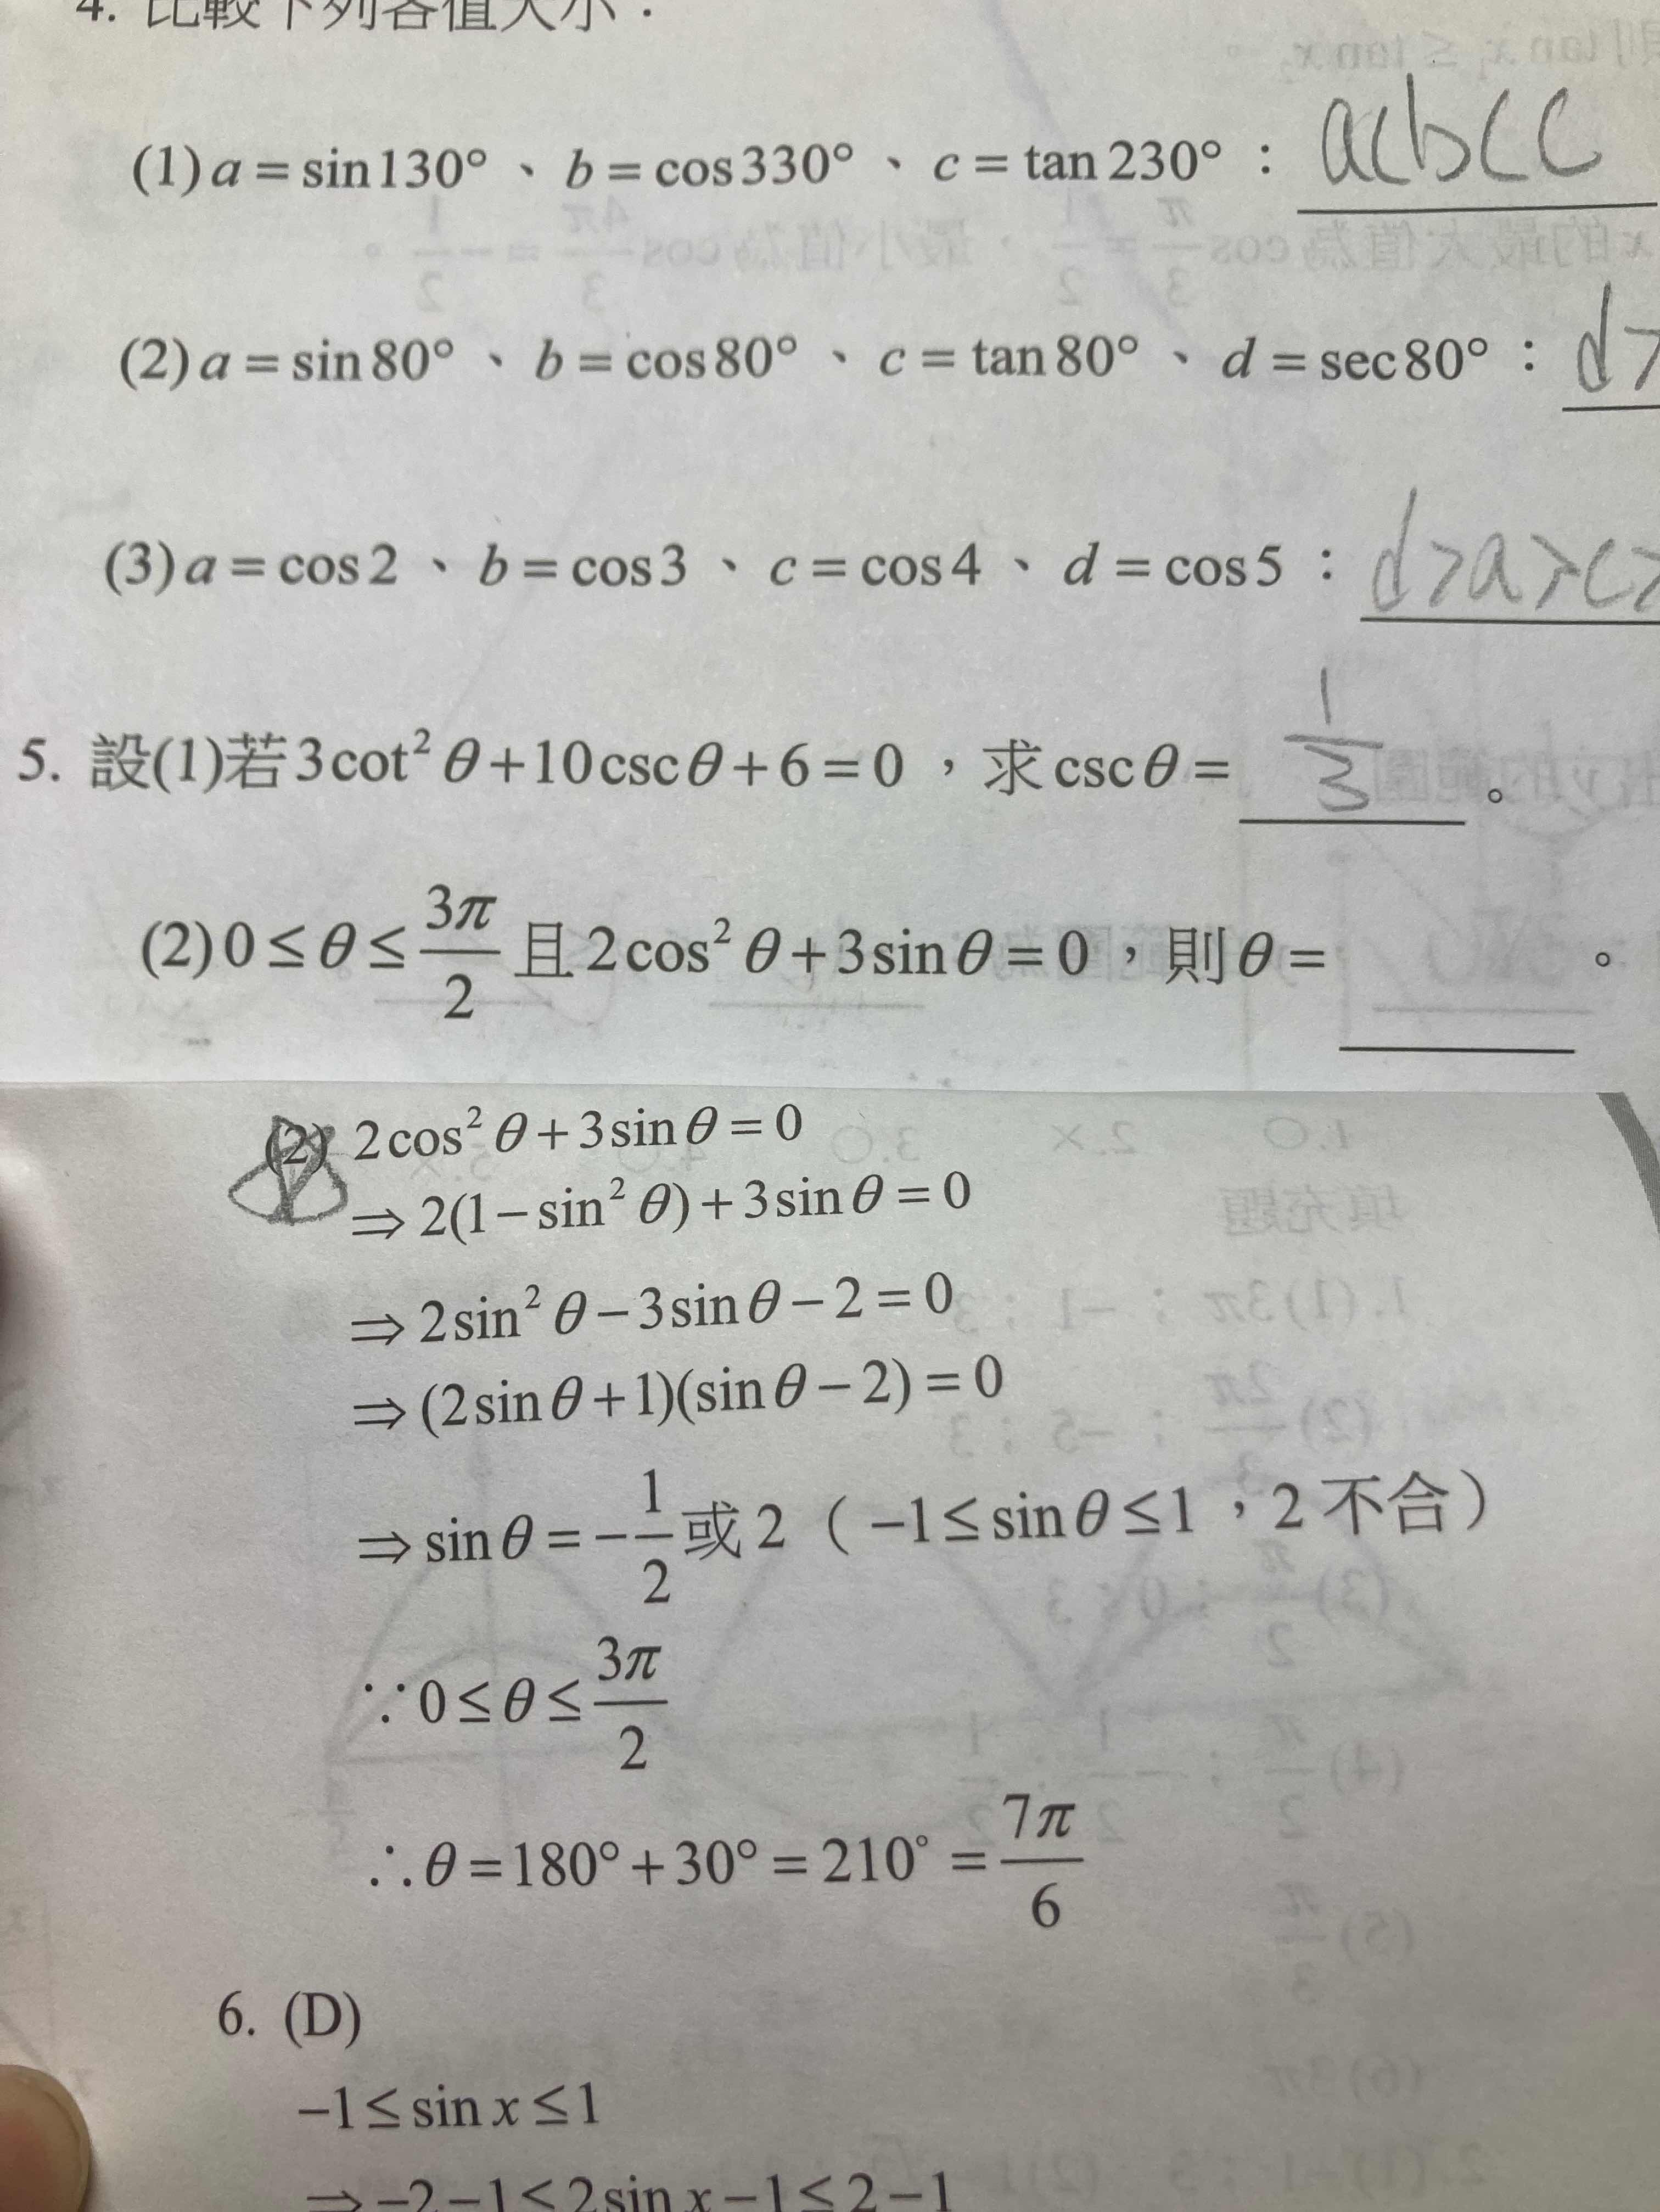 4. 比較下列各值大小：
(1) a = sin130° 、 b = cos330° 、 c = tan 230° ： a<b<c
(2) a = sin80° 、 b = cos80° 、 c = tan80° 、 d = sec80° ： d>
(3) a = cos2 、 b = cos3 、 c = cos4 、 d = cos5 ： d>a>c>
5. 設(1)若3cot² θ+10cscθ+6=0 ，求cscθ = 1/3 。
(2) 0 ≤ θ ≤ 3π/2 且 2cos² θ+3sinθ=0 ，則θ = 。
(2) 2cos² θ+3sinθ=0
⇒ 2(1−sin² θ)+3sinθ=0
⇒ 2sin² θ−3sinθ−2=0
⇒ (2sinθ+1)(sinθ−2)=0
⇒ sinθ = −1/2 或 2（ −1≤sinθ≤1 ，2 不合）
∵ 0≤θ≤3π/2
∴ θ=180°+30°=210°=7π/6
6. (D)
−1≤sin x≤1
⇒ −2−1≤2sin x−1≤2−1